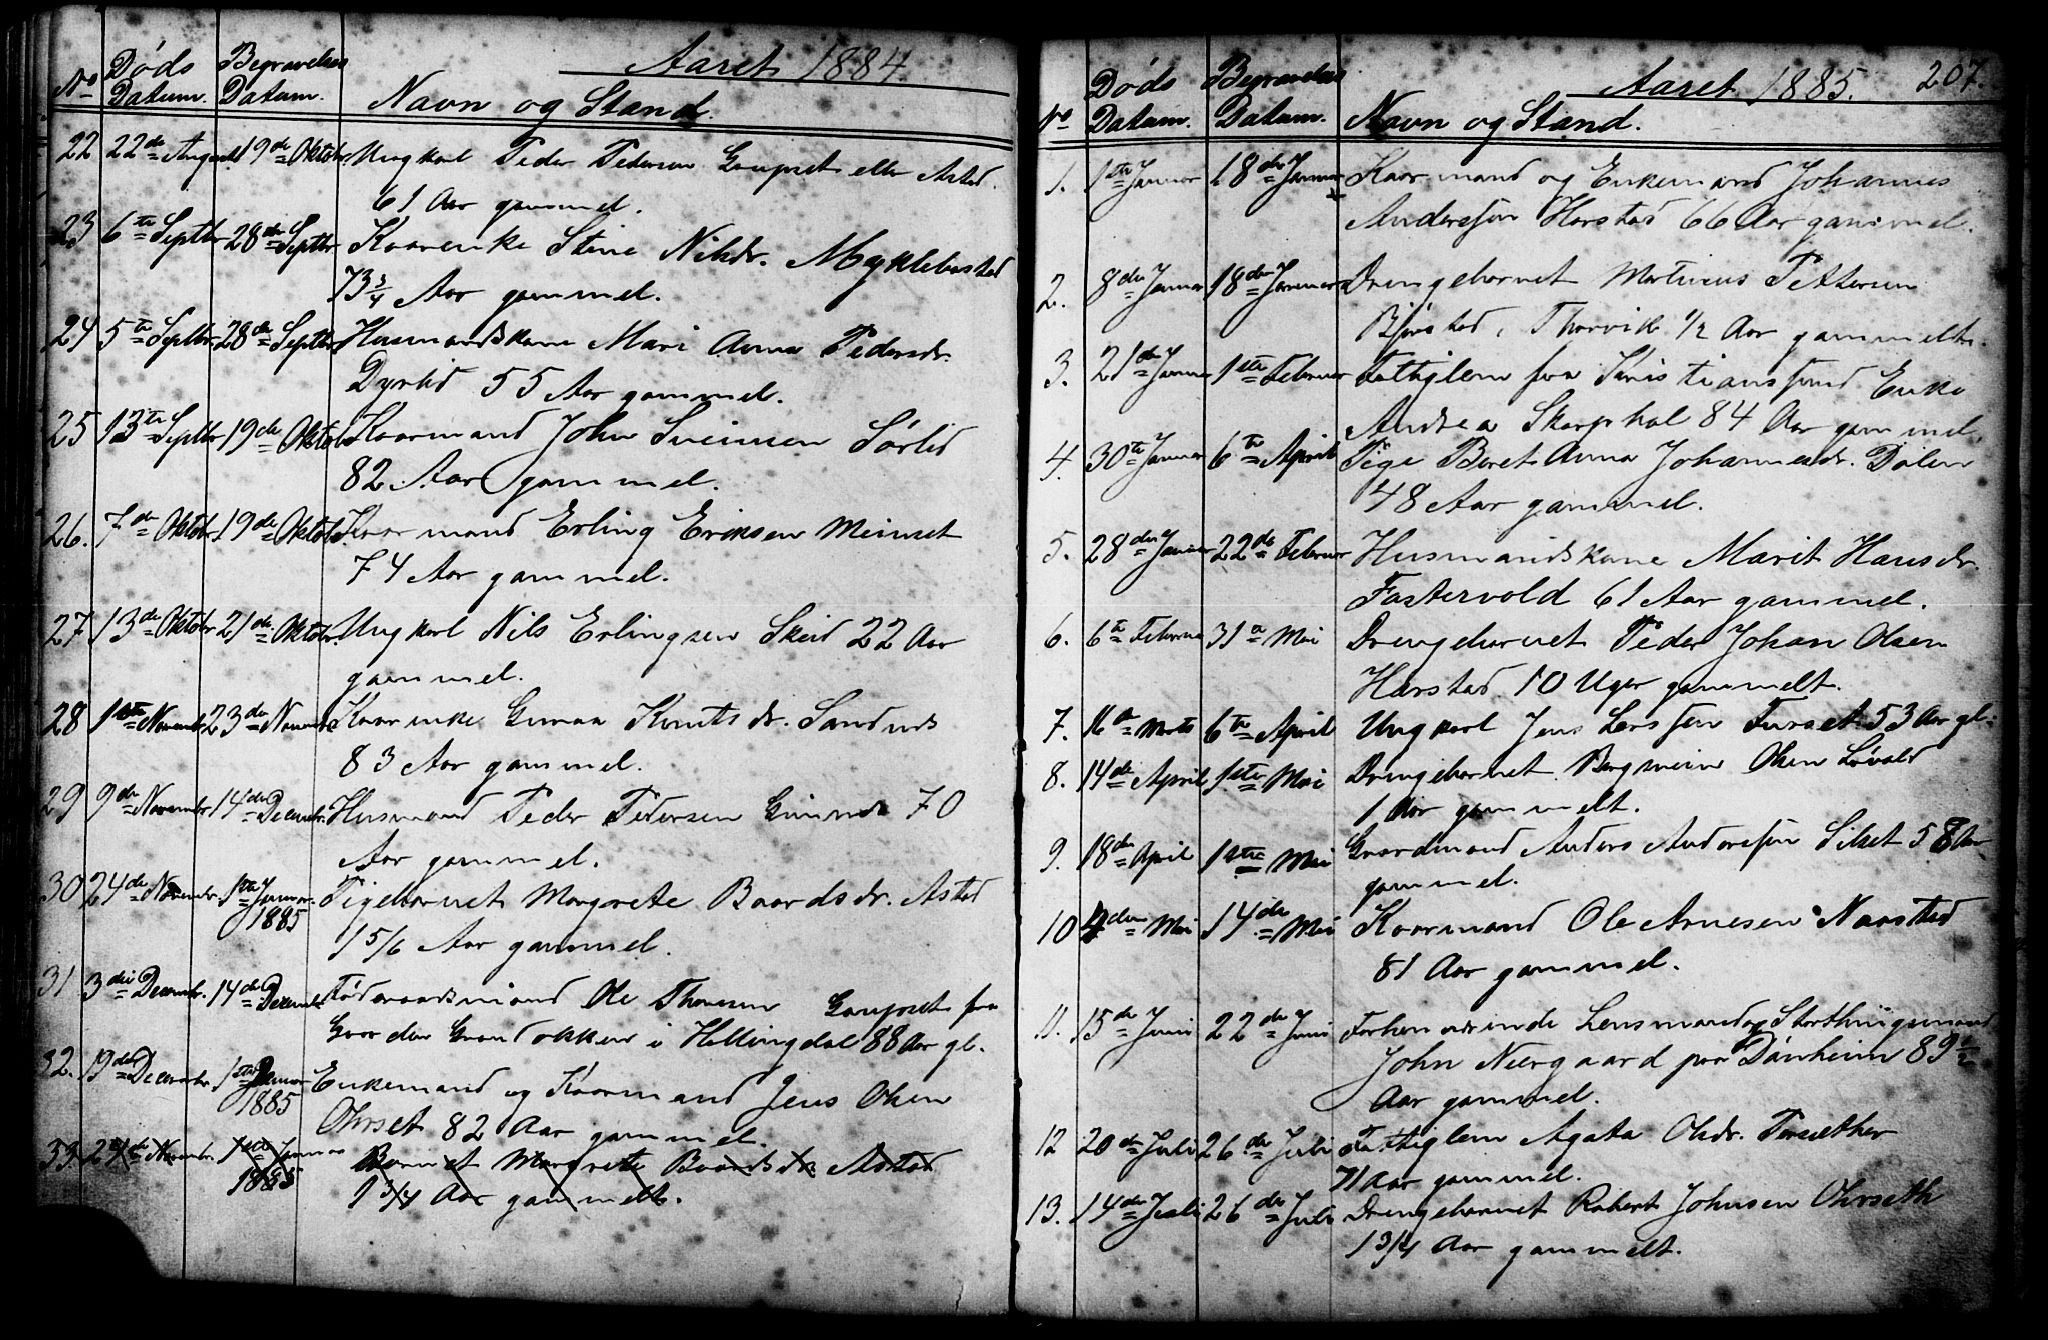 Aaret 1884
No Døds Datum. Begravelses Datum. Navn og Stand.
22 22de August 19de Oktobr Ungkarl Peder Pedersen Gaupset eller Astad.
61 Aar gammel.
23 6te Septbr 28de Septbr Kaarenke Stine Nilsdr. Myklebostad
73 3/4 Aar gammel.
24 5te Septbr 28de Septbr Husmandskone Mari Anna Pedersdr.
Dyrlid 55 Aar gammel.
25 13te Septbr 19de Oktobr Kaarmand John Svensen Sørlid
82 Aar gammel.
26. 7de Oktobr 19de Oktobr. Kaarmand Erling Eriksen Meinset
74 Aar gammel.
27 13de Oktobr 21de Oktobr. Ungkarl Nils Erlingsen Skeid 22 Aar
gammel.
28 1ste Novembr 23de Novembr Kaarenke Knutsdr. Sandnes
83 Aar gammel.
29 9de Novembr 14de Decembr. Husmand Peder Pedersen 70
Aar gammel.
30 24de Novembr. 1ste Januar. 1885 Pigebarnet Margrete Baardsdr. Astad
1 5/6 Aar gammel.
31 3die Decembr. 14de Decembr Føderaadsmand Ole Thoresen Gaupset fra
Gaarden i Hallingdal 88 Aar gl.
32. 19de Decembr. 1ste Januar 1885 Enkemand og Kaarmand Jens Olsen
Ohrset 82 Aar gammel.
33. 24de Novembr. 1ste Januar 1885 Barnet Margrete Baardsdr. Astad
1 3/4 Aar gammelt.
Aaret 1885. 207.
No Døds Datum. Begravelses Datum. Navn og Stand.
1. 1ste Januar 18de Januar Kaarmand og Enkemand Johannes
Anderssen Harstad 66 Aar gammel.
2. 8de Januar 18de Januar Drengebarnet Martinus Pettersen
Thorvik 1/2 Aar gammelt.
3. 21de Januar 1ste Februar Fattiglem fra Kristianssund Enke
Andrea Skarphol 84 Aar gammel.
4. 30te Januar 6te April Pige Beret Anna Johannesdr. Dalen
48 Aar gammel.
5. 28de Januar 22de Februar Husmandskone Marit Hansdr.
Fastervold 61 Aar gammel.
6. 6te Februar 31te Mai Drengebarnet Peder Johan Olsen
Harstad 10 Uger gammelt.
7. 16de Marts 6te April Ungkarl Jens Larssen Furset 53 Aar gl.
8. 14de April 1ste Mai Drengebarnet Bergsvein Olsen Løvold
1 Aar gammelt.
9. 18de April 1ste Mai Gaardmand Anders Anderssen Silset 58 Aar
gammel.
10 4de Mai 14de Mai Kaarmand Ole Arnesen Naastad
81 Aar gammel.
11. 15de Juni 22de Juni Forhenværende Lensmand og Storthingsmand
John Neergaard paa Dønheim 89 1/2
Aar gammel.
12 20de Juli 26de Juli Fattiglem Agata Olsdr. Torsæther
71 Aar gammel.
13. 14de Juli 26de Juli Drengebarnet Robert Johnsen Ohrseth
1 3/4 Aar gammelt.